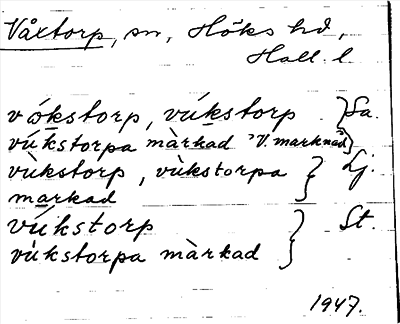 Våxtorp, sn, Höks hd,
Hall. l.
vókstorp, vúkstorp } Sa.
vúkstorpa màrkad "V. marknad")
vùkstorp, vùkstorpa } Lj.
markad
vúkstorp } St.
vùkstorpa màrkad
1947.